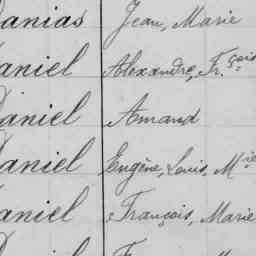 Danias Jean, Marie
Daniel Alexandre, Fr.çois
Daniel Amand
Daniel Eugène, Louis, Mie
Daniel François, Marie